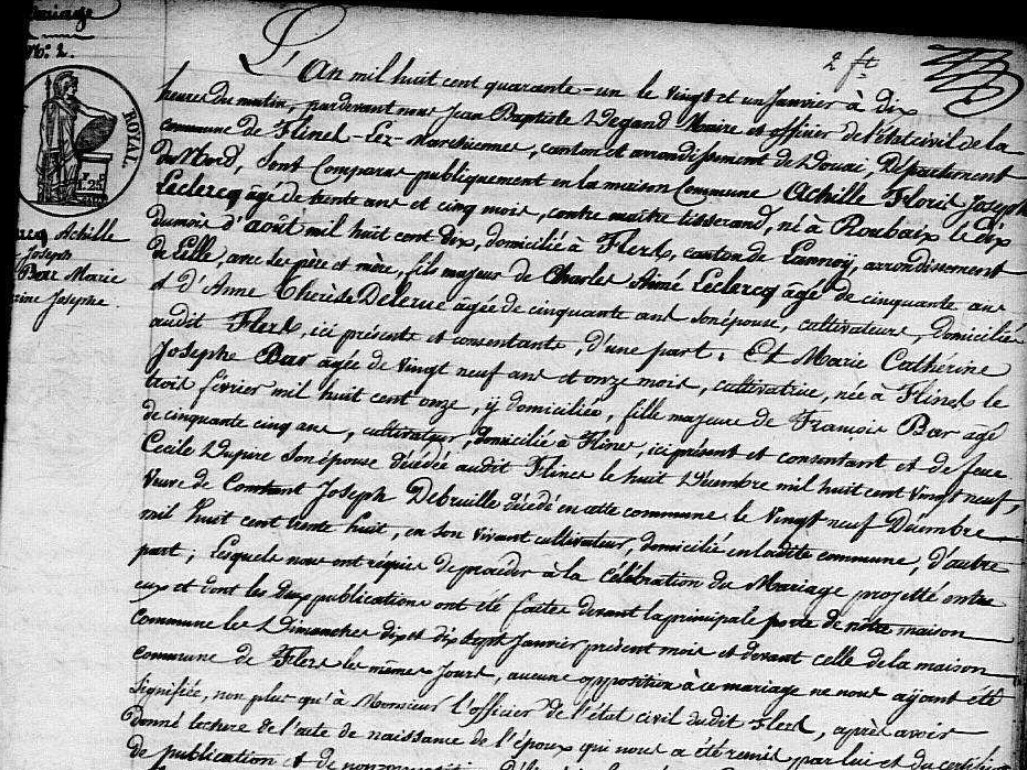 Mariage
N.° 2.
ROYAL.
1.25
Achille
Joseph
Bar Marie
Josephe
2 ft
L'An mil huit cent quarante-un le vingt et un Janvier à dix
heures du matin, pardevant nous Jean Baptiste Degand Maire et officier de l'état civil de la
commune de Flines-Lez-Marchiennes, canton et arrondissement de Douai, Département
du Nord, sont Comparus publiquement en la maison Commune Achille Floris Joseph
Leclercq âgé de trente ans et cinq mois, contre maître tisserand, né à Roubaix le dix
du mois d'août mil huit cent dix, domicilié à Flers, canton de Lannoy, arrondissement
de Lille, avec ses père et mère, fils majeur de Charles Aimé Leclercq âgé de cinquante ans
et d'Anne Thérèse Delerue âgée de cinquante ans son épouse, cultivateurs, domiciliés
audit Flers, ici présents et consentants, d'une part. Et Marie Cathérine
Josephe Bar âgée de vingt neuf ans et onze mois, cultivatrice, née à Flines le
trois février mil huit cent onze, y domiciliée, fille majeure de François Bar âgé
de cinquante cinq ans, cultivateur, domicilié à Flines, ici présent et consentant et de feue
Cecile Dupire son épouse décédée audit Flines le huit Décembre mil huit cent vingt neuf,
Veuve de Constant Joseph Debruille décédé en cette commune le vingt neuf Décembre
mil huit cent trente huit, en son vivant cultivateur, domicilié en ladite commune, d'autre
part; lesquels nous ont réquis de procéder à la célébration du Mariage projetté entre
eux et dont les deux publications ont été faites devant la principale porte de nôtre maison
Commune les Dimanches dix et dix sept Janvier présent mois et devant celle de la maison
commune de Flers les mêmes jours, aucune opposition à ce mariage ne nous ayant été
signifiée, non plus qu'à Monsieur l'officier de l'état civil dudit Flers, après avoir
donné lecture de l'acte de naissance de l'époux qui nous a été remis par lui et du certificat
de publication et de nonopposition